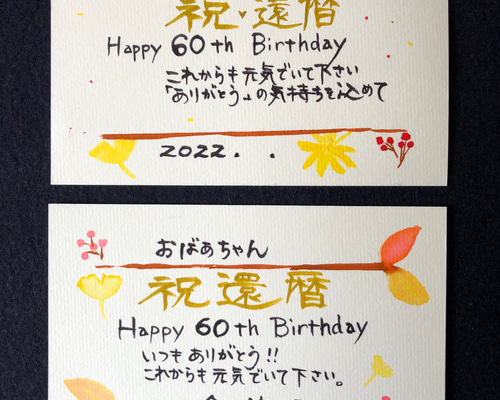 祝・還暦
Happy 60th Birthday
これからも元気でいて下さい
「ありがとう」の気持ちを込めて
2022. .
おばあちゃん
祝還暦
Happy 60th Birthday
いつもありがとう!!
これからも元気でいて下さい。